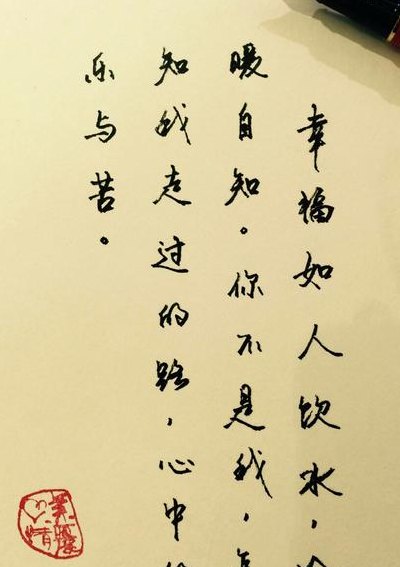 幸福如人饮水，
暖自知。你不是我，
知我走过的路，心中
乐与苦。